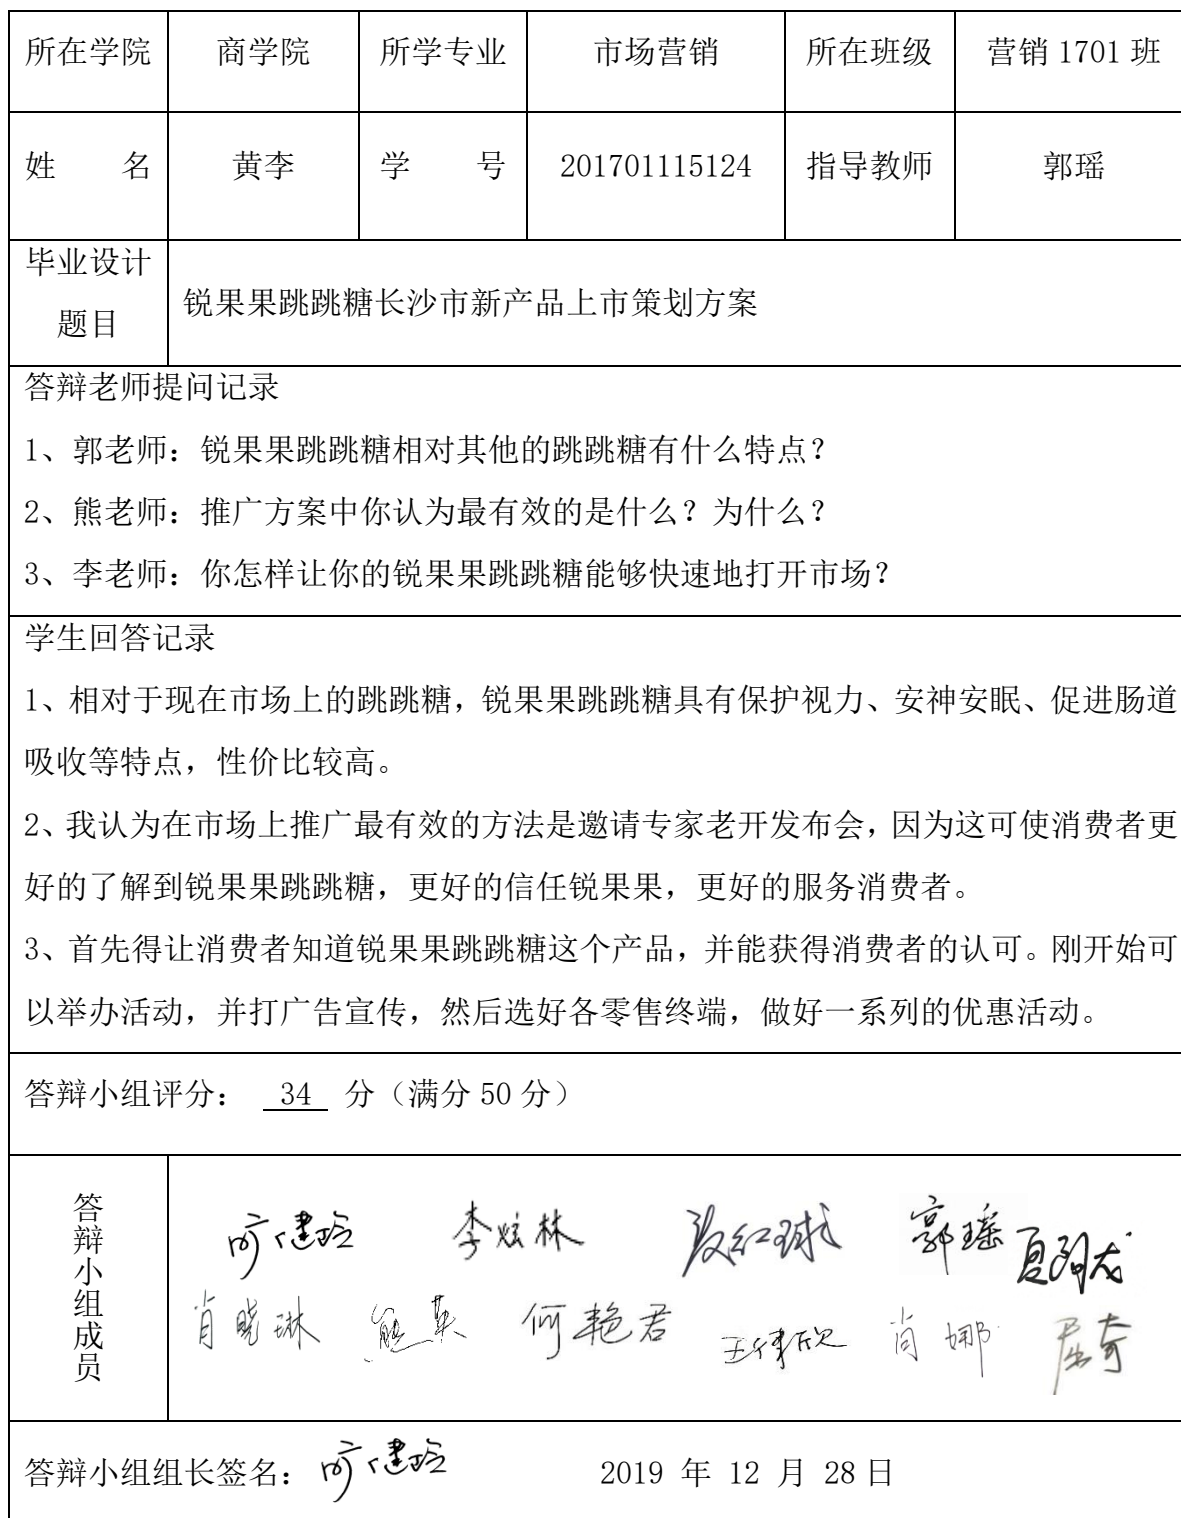 所在学院 商学院 所学专业 市场营销 所在班级 营销 1701 班
姓 名 黄李 学 号 201701115124 指导教师 郭瑶
毕业设计
题目
锐果果跳跳糖长沙市新产品上市策划方案
答辩老师提问记录
1、郭老师：锐果果跳跳糖相对其他的跳跳糖有什么特点？
2、熊老师：推广方案中你认为最有效的是什么？为什么？
3、李老师：你怎样让你的锐果果跳跳糖能够快速地打开市场？
学生回答记录
1、相对于现在市场上的跳跳糖，锐果果跳跳糖具有保护视力、安神安眠、促进肠道
吸收等特点，性价比较高。
2、我认为在市场上推广最有效的方法是邀请专家老开发布会，因为这可使消费者更
好的了解到锐果果跳跳糖，更好的信任锐果果，更好的服务消费者。
3、首先得让消费者知道锐果果跳跳糖这个产品，并能获得消费者的认可。刚开始可
以举办活动，并打广告宣传，然后选好各零售终端，做好一系列的优惠活动。
答辩小组评分： 34 分（满分 50 分）
答辩小组成员
李炫林 郭瑶
肖晓琳 熊英 何艳君 肖娜 屈奇
答辩小组组长签名： 2019 年 12 月 28 日